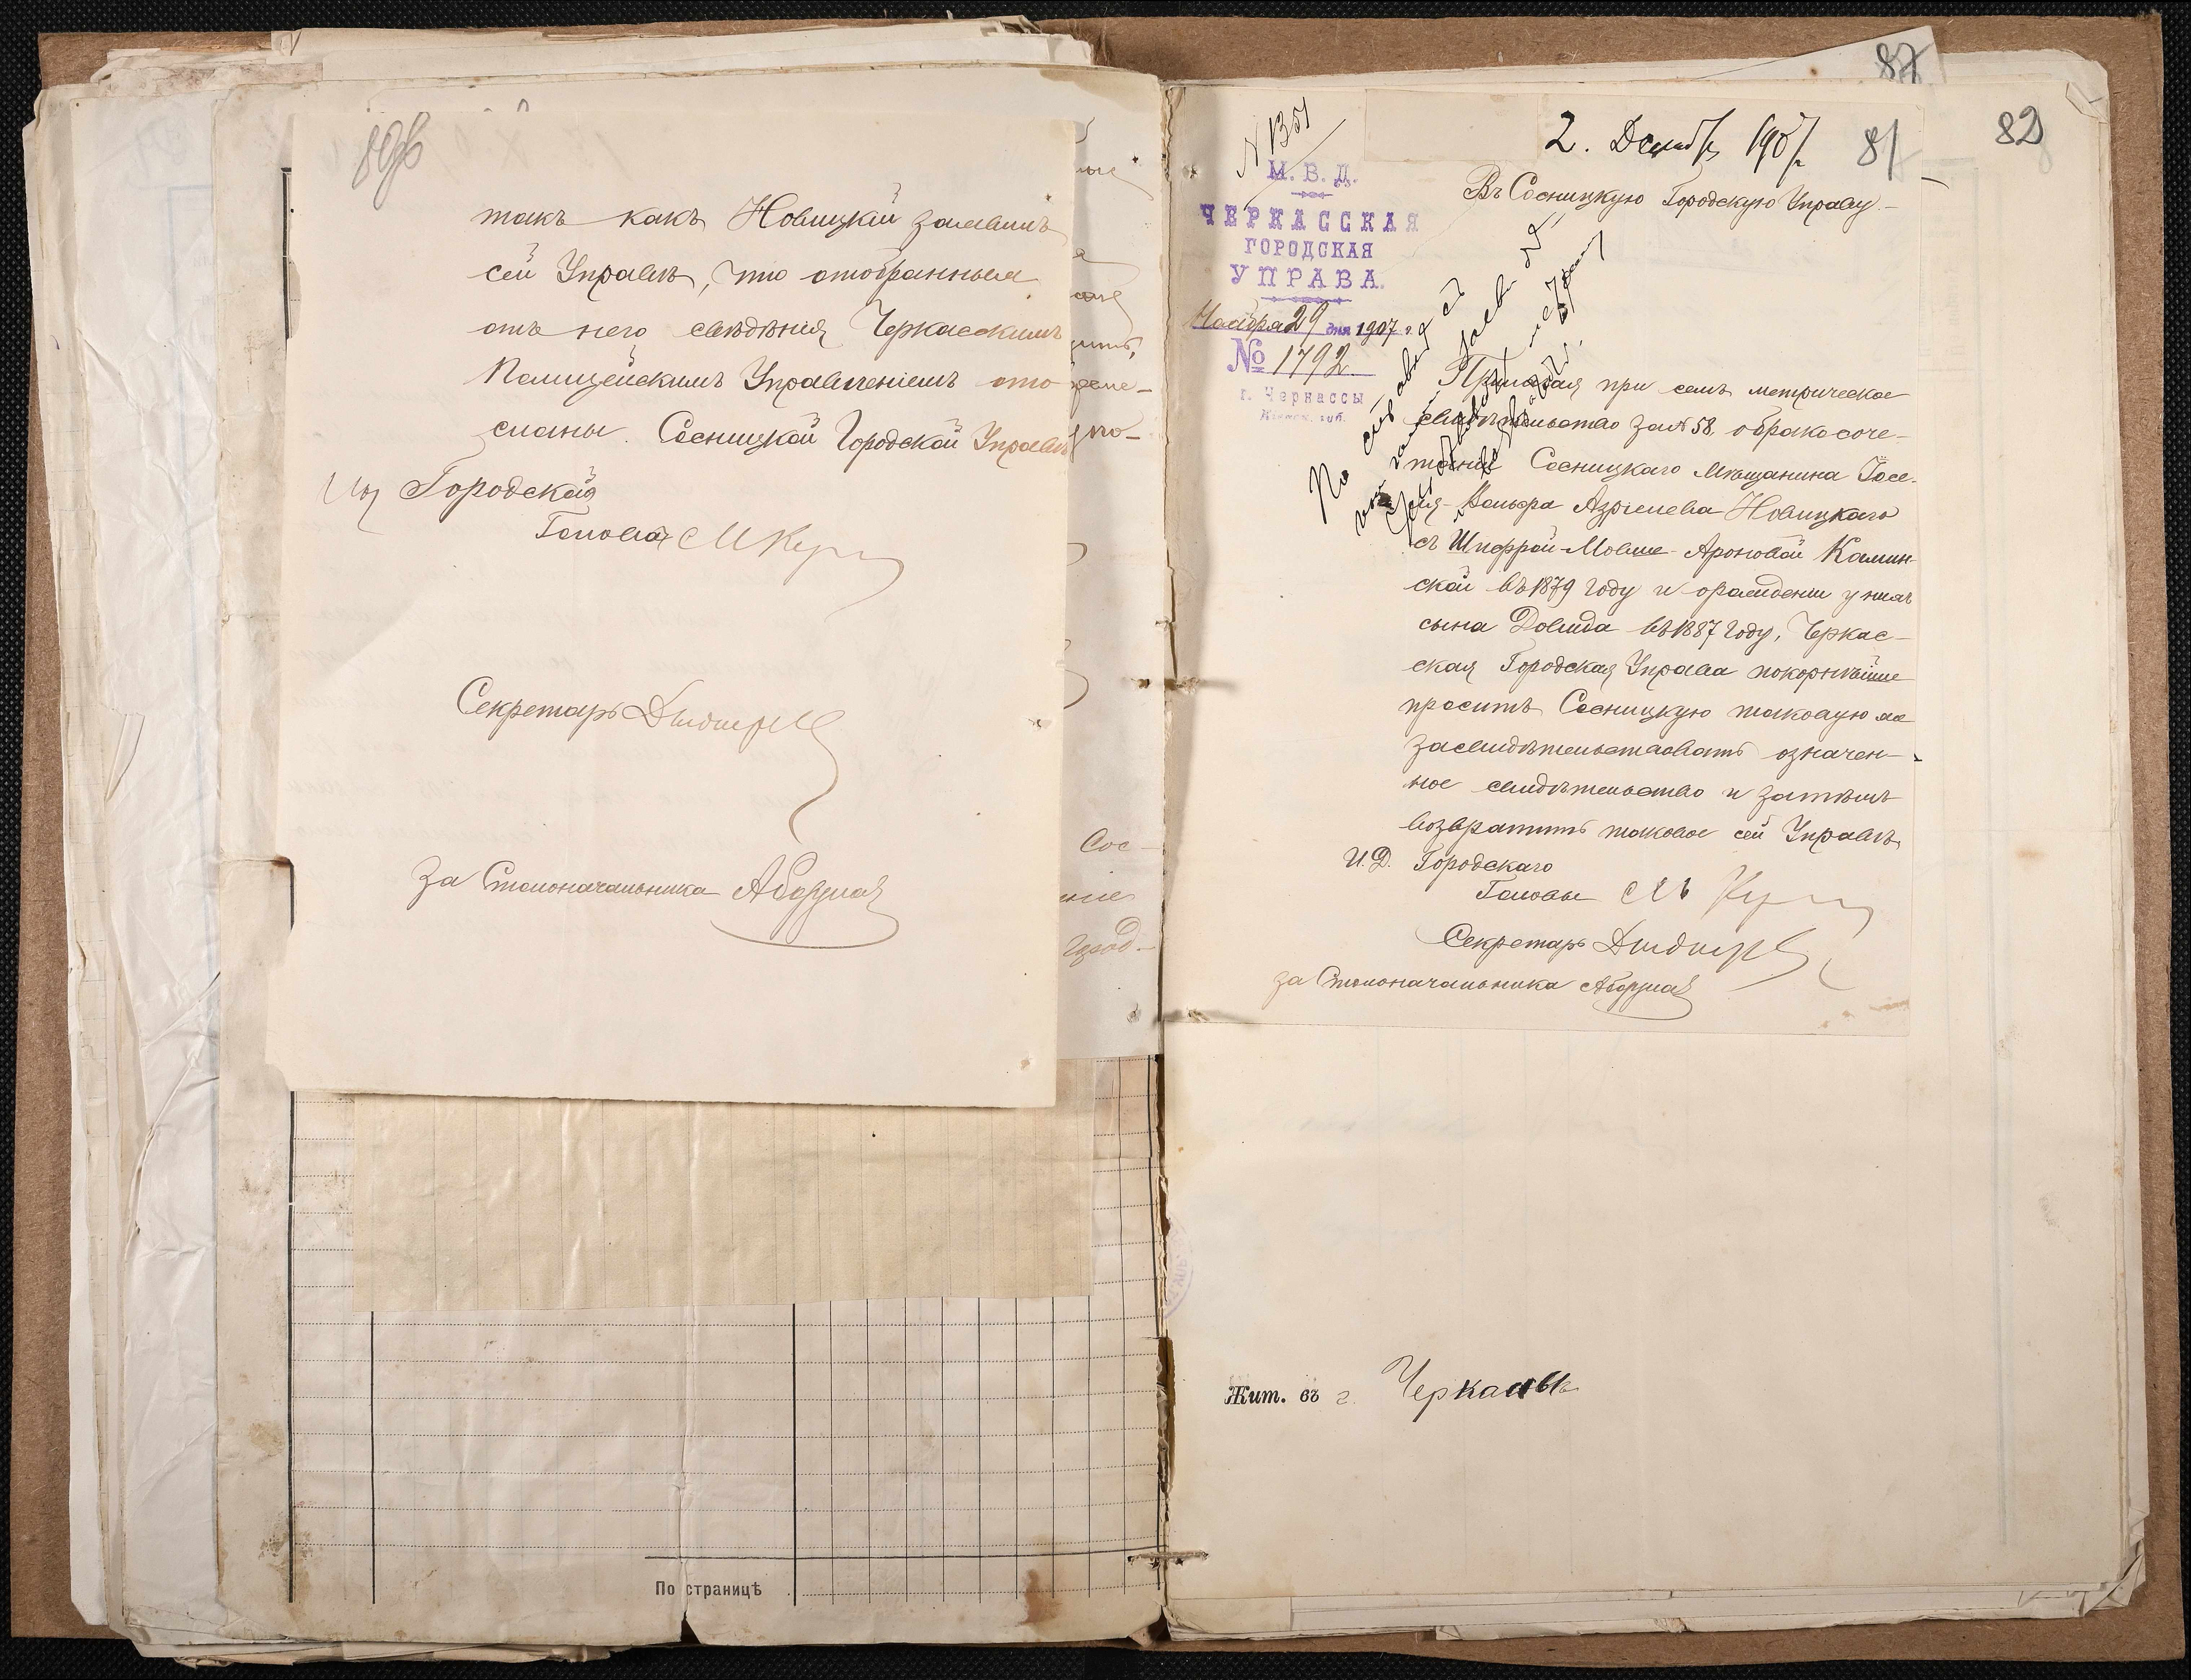 такъ какъ Новицкій заявилъ
сей Управѣ, что отобранныя
отъ него свѣдѣнія Черкасскимъ
Полицейскимъ Управленіемъ ото-
сланы Сосницкой Городской Управѣ
Городской
Голова
Секретарь
За Столоначальника
Сос-
По страницѣ
87
82
81
2. Декабр 1907 г.
N 1351
М. В. Д.
ЧЕРКАССКАЯ
ГОРОДСКАЯ
УПРАВА.
Ноября 29 дня 1907 г.
№ 1792
г. Черкассы
Кіевск. губ.
Въ Сосницкую Городскую Управу.
Прилагая при семъ метрическое
свидѣтельство за № 58, о бракосоче-
таніи Сосницкаго мѣщанина Іосе-
Вольфа Азріелева Новицкаго
съ Шифрой-Мовше-Ароновой Камин-
ской въ 1879 году и о рожденіи у нихъ
сына Довида въ 1887 году, Черкас-
ская Городская Управа покорнѣйше
проситъ Сосницкую таковую же
засвидѣтельствовать означен-
ное свидѣтельство и затѣмъ
возвратить таковое сей Управѣ.
И. Д. Городского
Головы
Секретарь
за Столоначальника
Жит. въ г. Черкассы